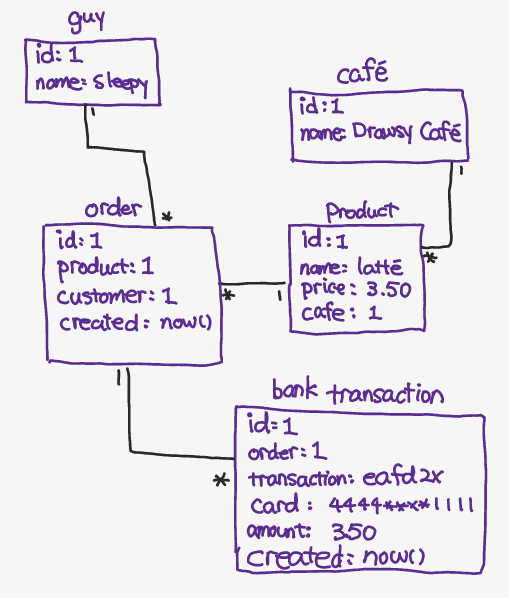 guy
id: 1
name: Sleepy
café
id: 1
name: Drawsy Café
order
id: 1
product: 1
customer: 1
created: now()
Product
id: 1
name: latté
price: 3.50
cafe: 1
1
*
1
*
*
1
1
*
bank transaction
id: 1
order: 1
transaction: eafd2x
Card: 4444****1111
amount: 3.50
created: now()